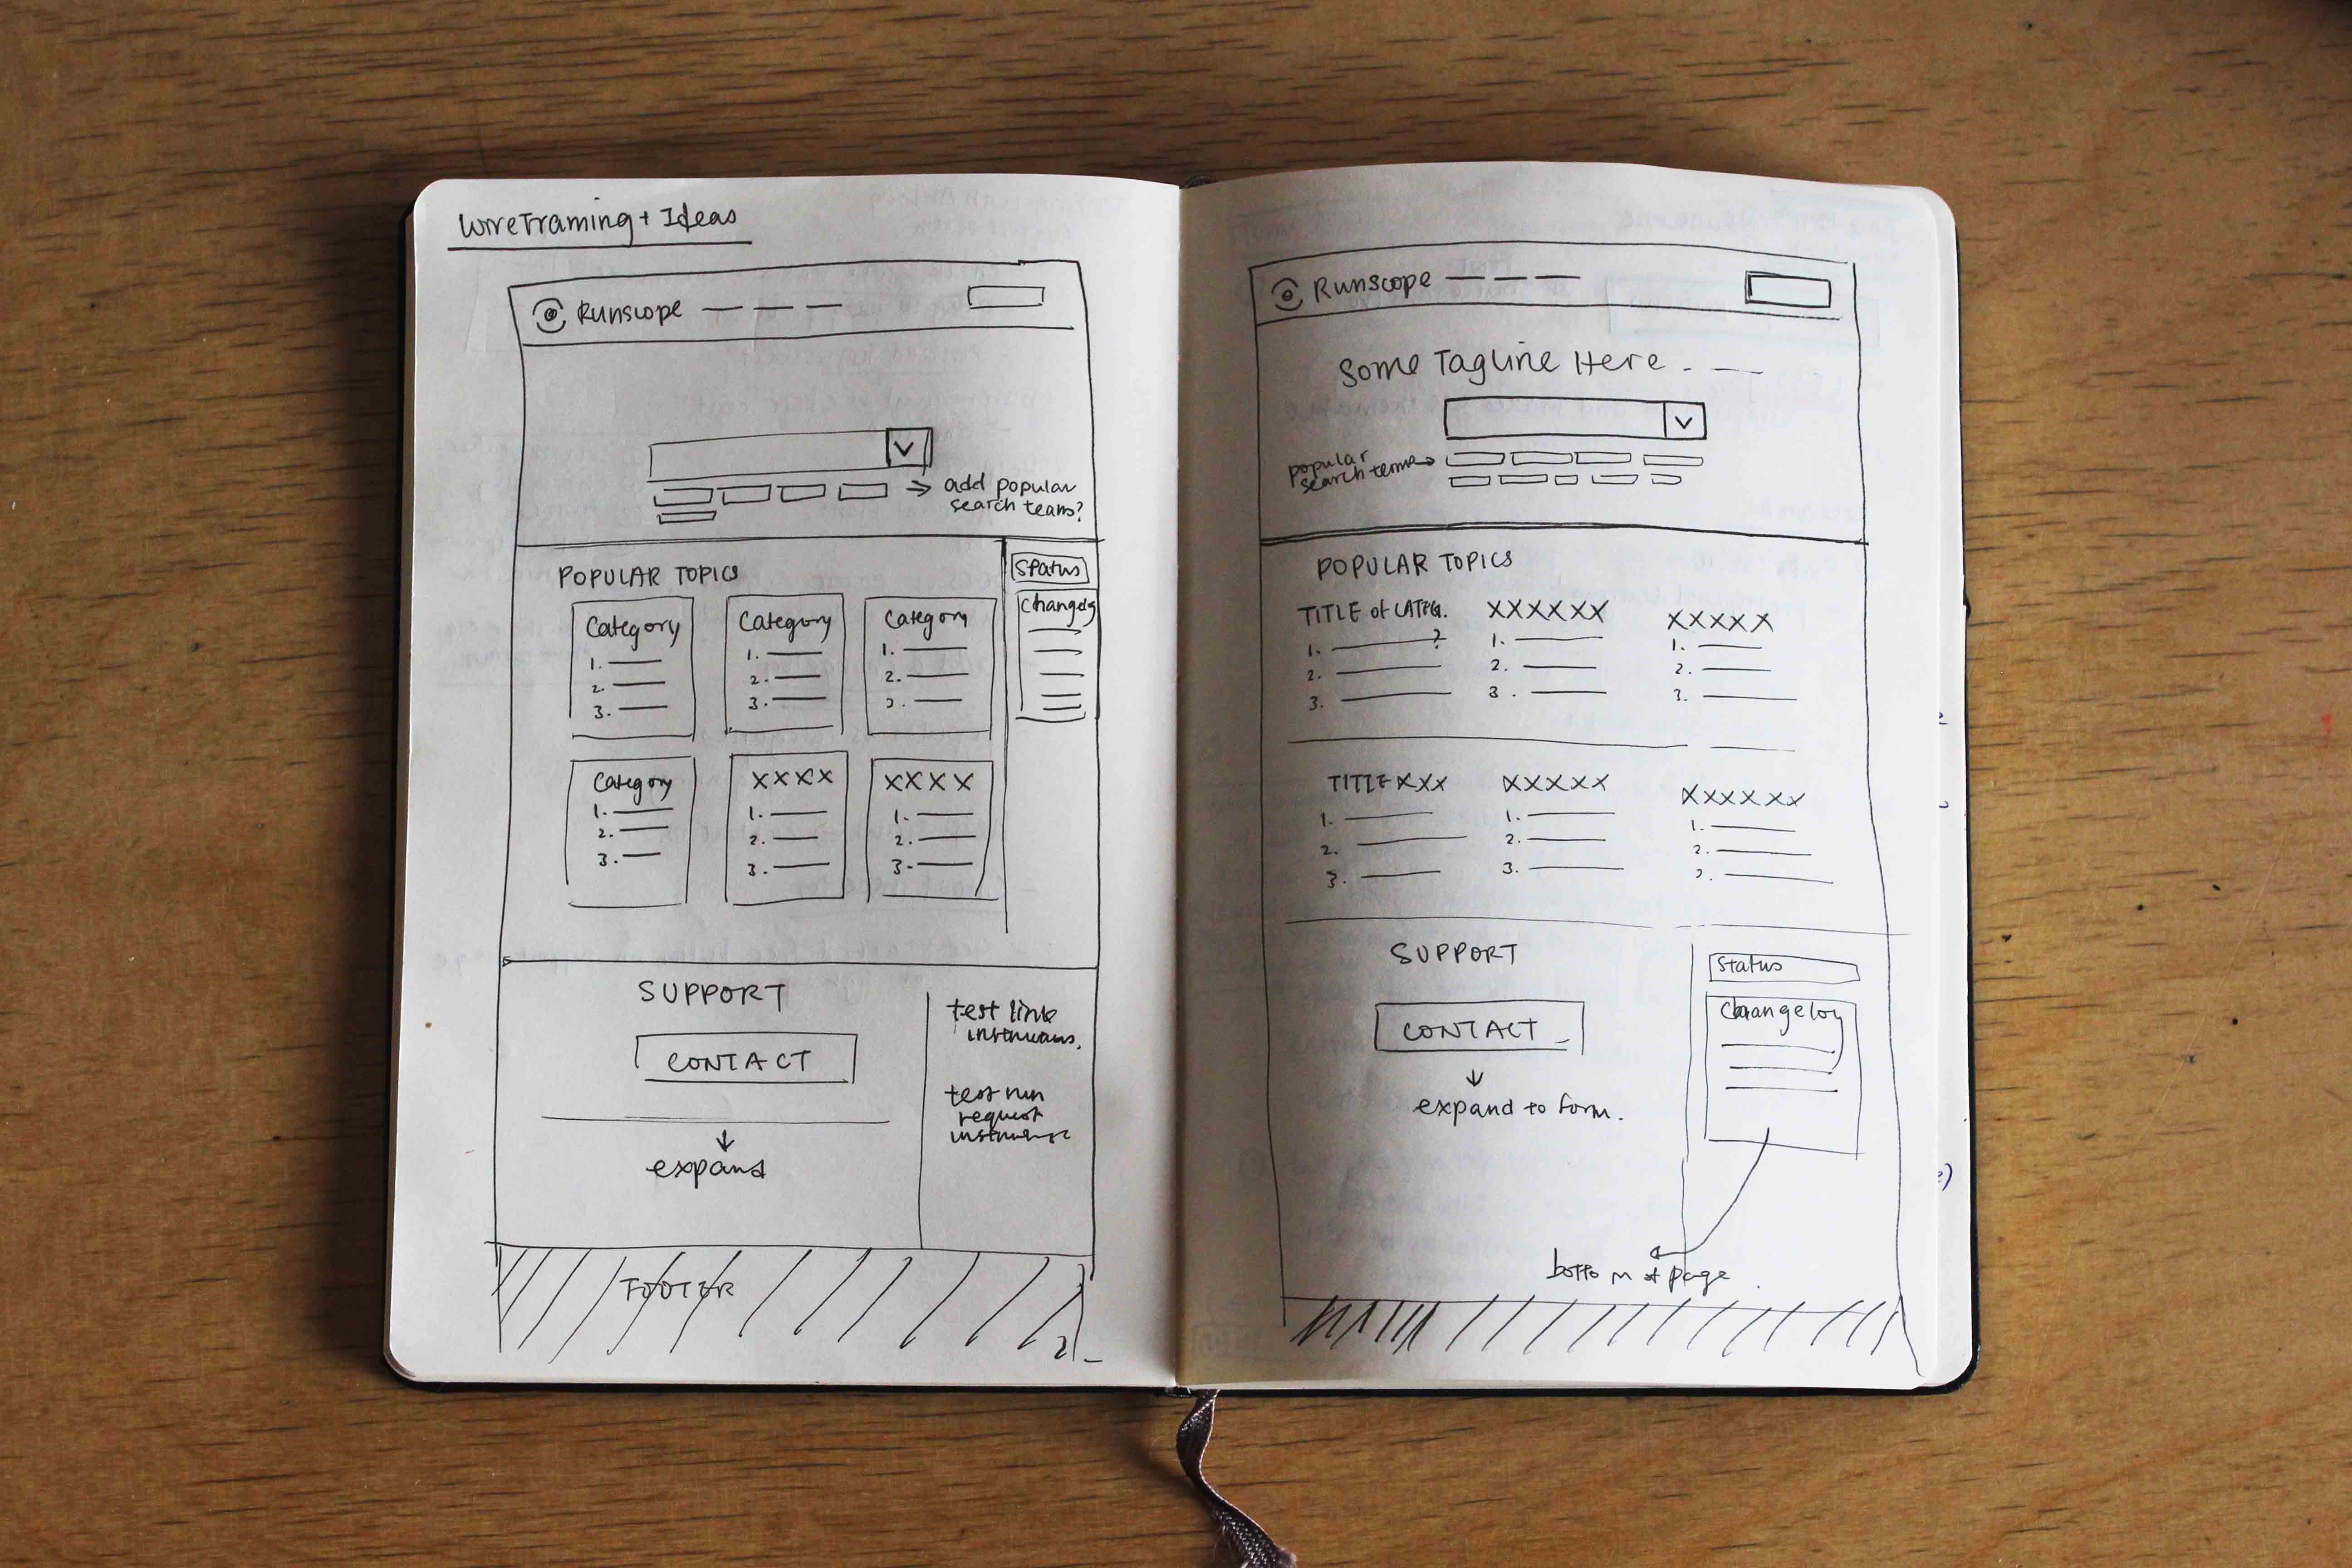 Wireframing + Ideas
Runscope
add popular
search teams?
POPULAR TOPICS
Status
Changelg
Category
1.
2.
3.
Category
1.
2.
3.
Category
1.
2.
3.
Category
1.
2.
3.
XXXX
1.
2.
3.
XXXX
1.
2.
3.
SUPPORT
CONTACT
expand
test link
test run
request
FOOTER
Runscope
Some Tagline Here
popular
search terms
POPULAR TOPICS
TITLE of CATEG.
1. ?
2.
3.
XXXXXX
1.
2.
3.
XXXXX
1.
2.
3.
TITLE XXX
1.
2.
3.
XXXXX
1.
2.
3.
XXXXXX
1.
2.
SUPPORT
CONTACT
expand to form.
Status
Changelog
bottom of page